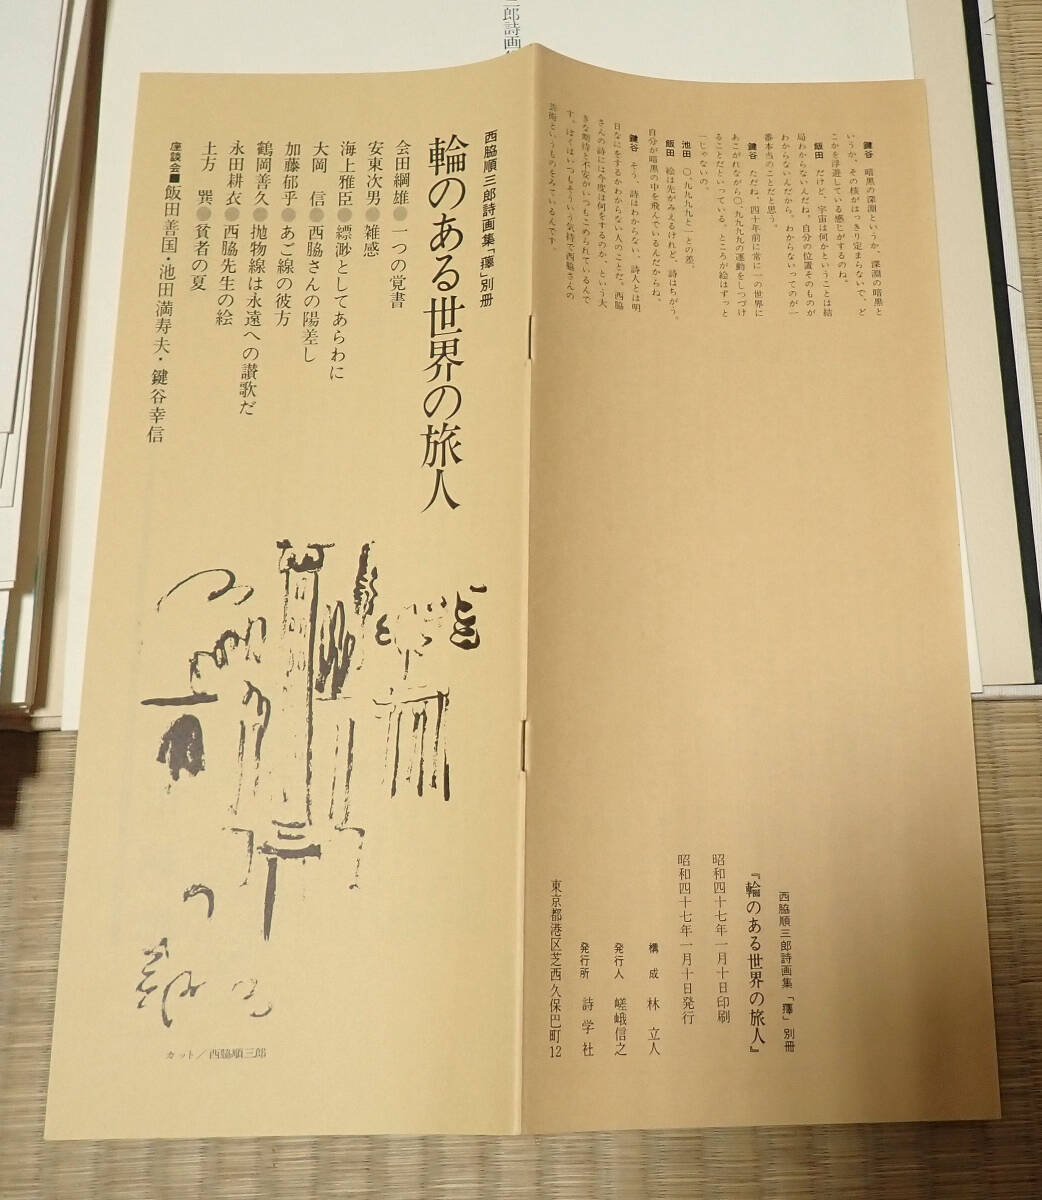 西脇順三郎詩画集「〓」別冊
輪のある世界の旅人
会田綱雄●一つの覚書
安東次男●雑感
海上雅臣●縹渺としてあらわに
大岡　信●西脇さんの陽差し
加藤郁乎●あご線の彼方
鶴岡善久●抛物線は永遠への讃歌だ
永田耕衣●西脇先生の絵
土方　巽●貧者の夏
座談会■飯田善国・池田満寿夫・鍵谷幸信
カット／西脇順三郎
鍵谷　暗黒の深淵というか、深淵の暗黒と
いうか、その核がはっきり定まらないで、ど
こかを浮遊している感じがするのね。
飯田　だけど、宇宙は何かということは結
局わからないんだね。自分の位置そのものが
わからないんだから。わからないってのが一
番本当のことだと思う。
鍵谷　ただね、四十年前に常に一の世界に
あこがれながら〇、九九九九の運動をしつづけ
ることだといっている。ところが絵はずっと
一じゃないの。
池田　〇、九九九と一との差。
飯田　絵は先がみえるけれど、詩はちがう。
自分が暗黒の中を飛んでいるんだからね。
鍵谷　そう、詩はわからない、詩人とは明
日なにをするかわからない人のことだ。西脇
さんの詩には今度は何をするのか、という大
きな期待と不安がいつもこめられているんで
す。ぼくはいつもそういう気持で西脇さんの
芸術というものをみているんです。
西脇順三郎詩画集「〓」別冊
『輪のある世界の旅人』
昭和四十七年一月十日印刷
昭和四十七年一月十日発行
構　成　林　立人
発行人　嵯峨信之
発行所　詩学社
東京都港区芝西久保巴町12
郎詩画